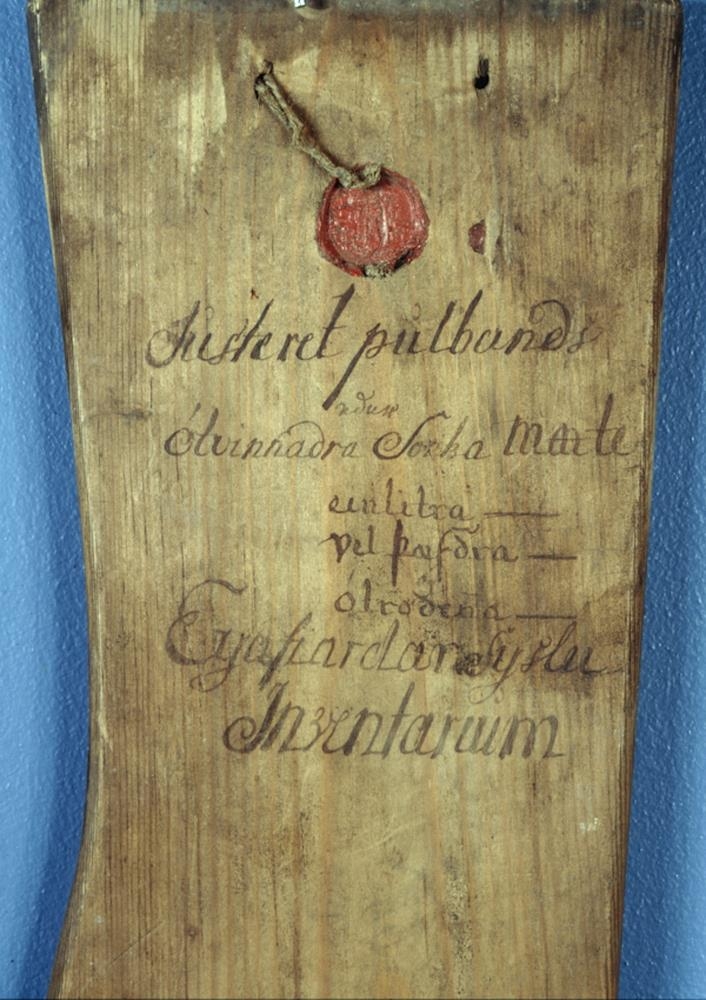 Justeret pulbands
edur
ólvinnadra Socka maate
einlitra —
vel þæfdra —
ólrodena —
Eyafiardar Syslu
Inventarium